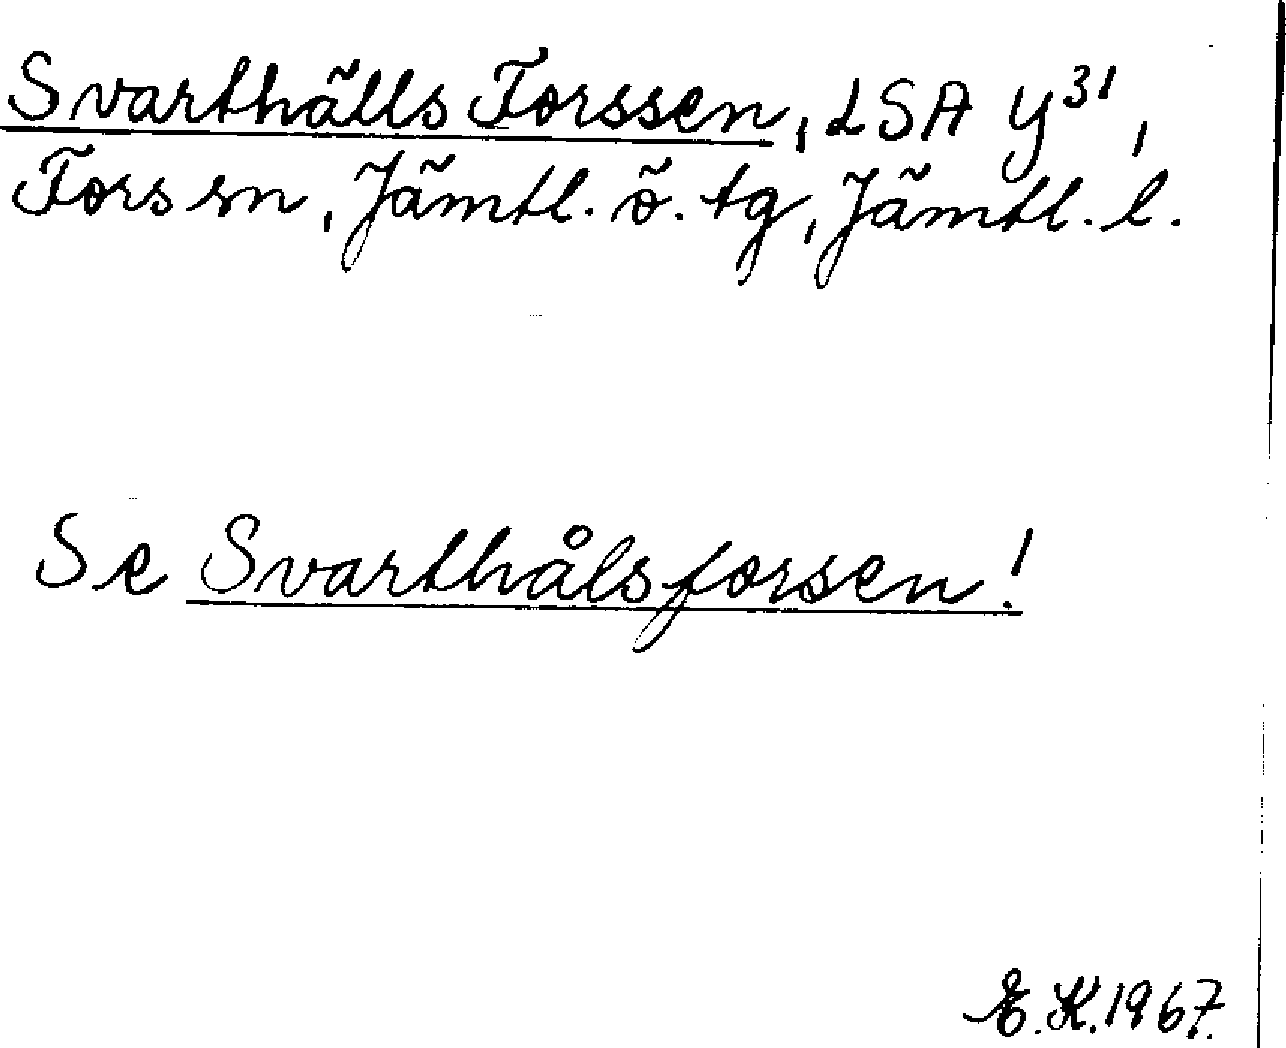 Svarthälls Forssen, LSA Y31,
Fors sn, Jämtl. ö. tg, Jämtl. l.
Se Svarthålsforsen!
E.K. 1967.